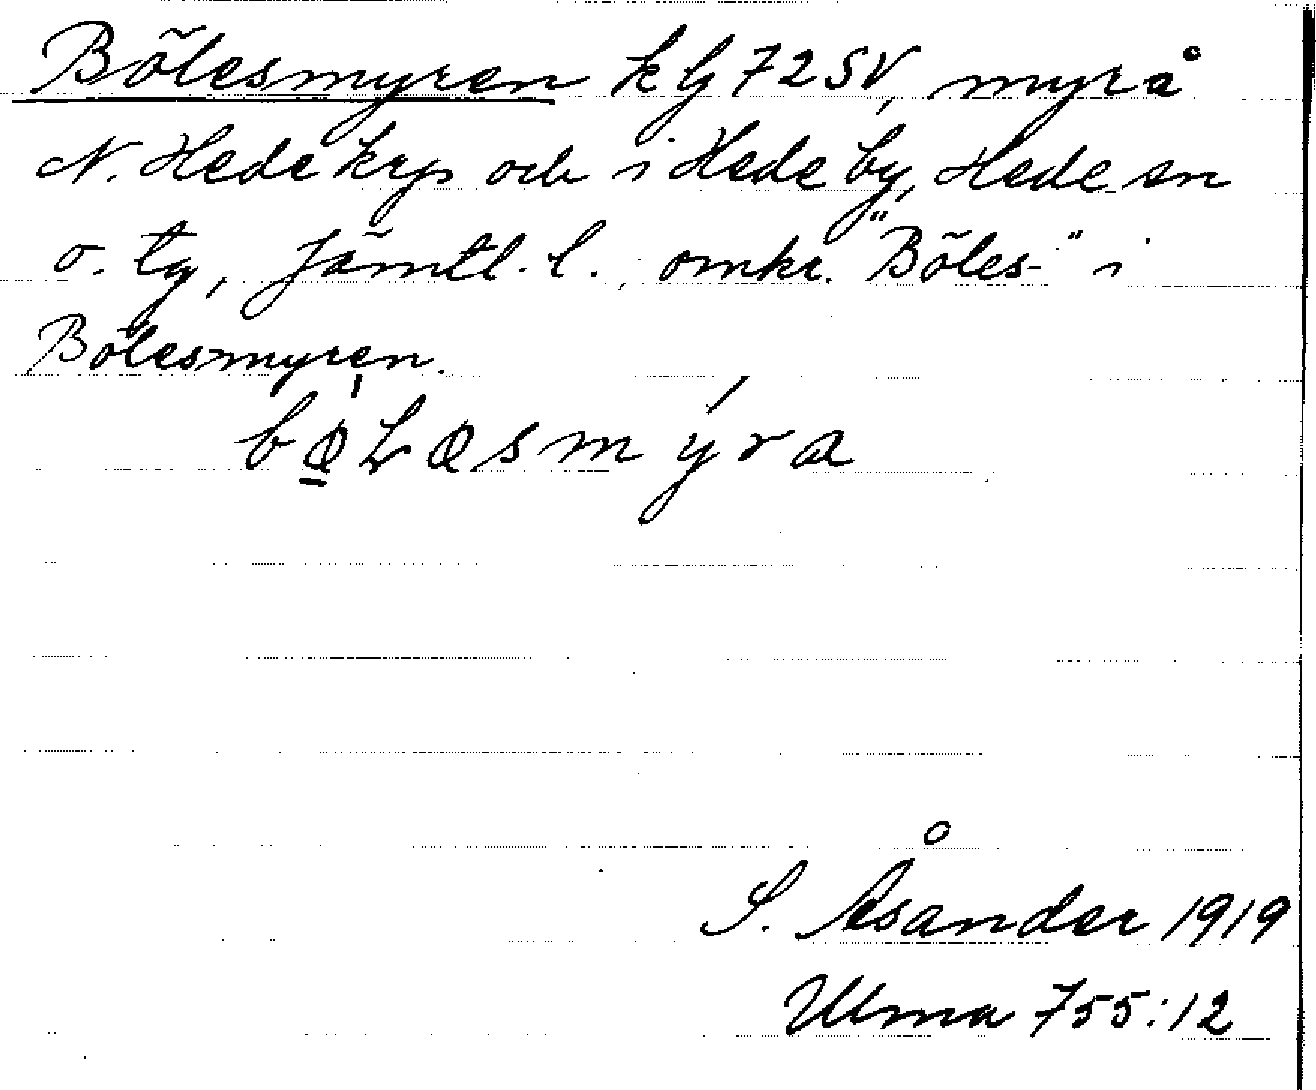 Bölesmyren kg 72 SV, myr å
N. Hede krp och i Hede by, Hede sn
o. tg, Jämtl. l., omkr. "Böles-" i
Bölesmyren.
S. Åsander 1919
Ulma 755:12